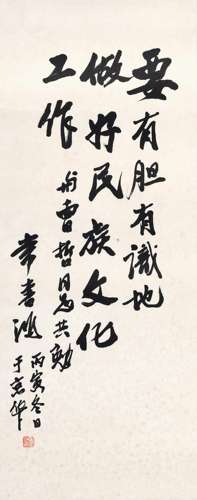 要有胆有識地
做好民族文化
工作
与曹哲同志共勉
常書鴻
丙寅冬日
于京华